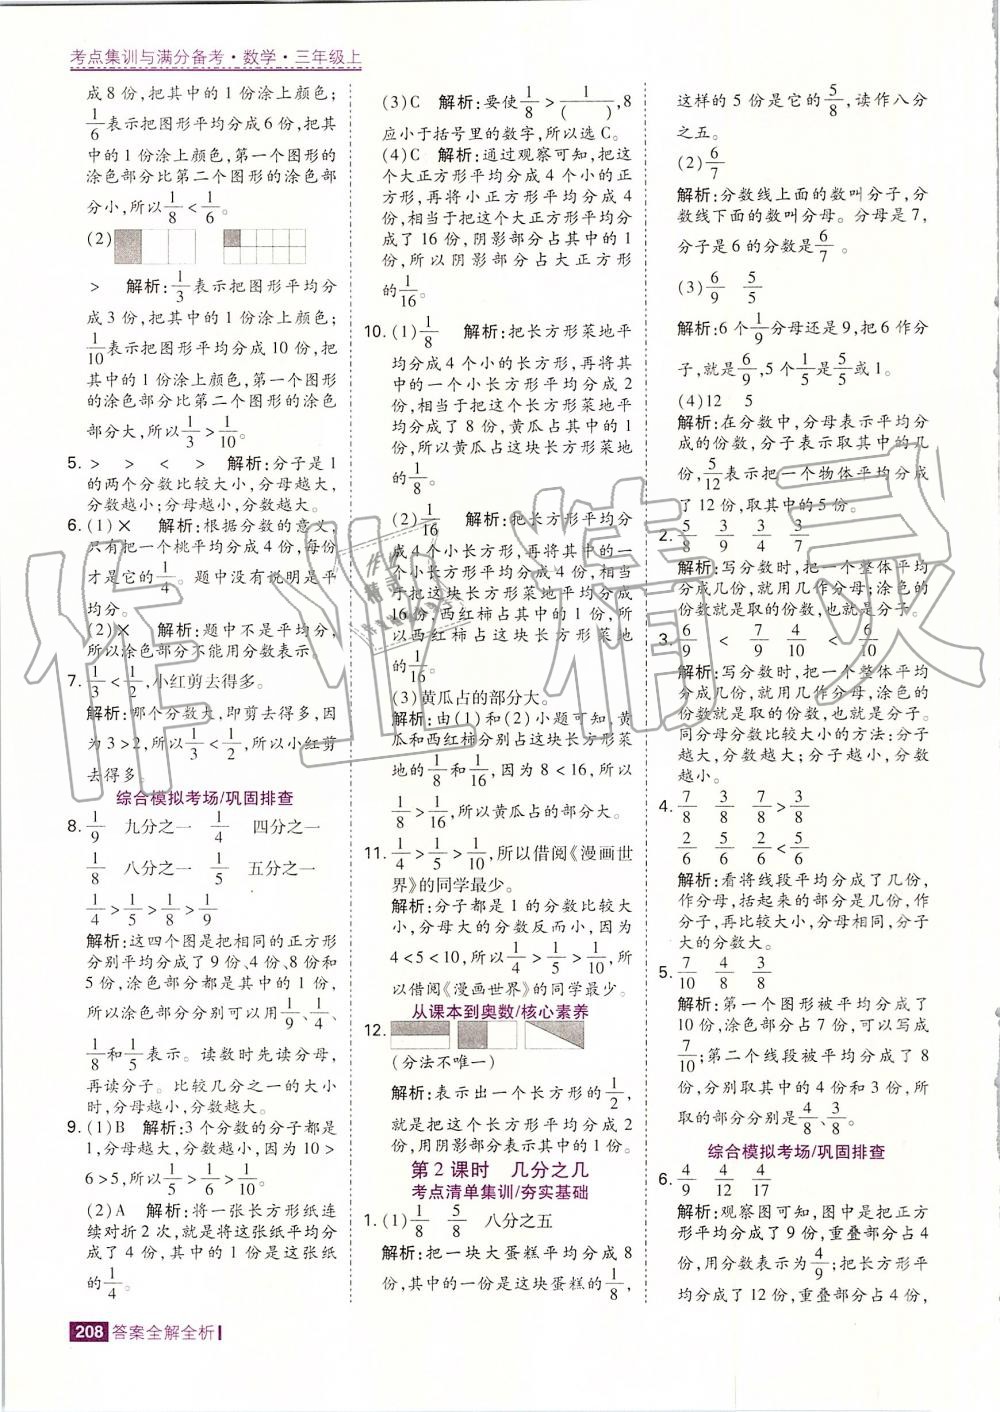 考点集训与满分备考·数学·三年级上
成8份,把其中的1份涂上颜色;
1/6表示把图形平均分成6份,把其
中的1份涂上颜色,第一个图形的
涂色部分比第二个图形的涂色部
分小,所以1/8<1/6。
(2)
> 解析:1/3表示把图形平均分
成3份,把其中的1份涂上颜色;
1/10表示把图形平均分成10份,把
其中的1份涂上颜色,第一个图形
的涂色部分比第二个图形的涂色
部分大,所以1/3>1/10。
5. > > < > 解析:分子是1
的两个分数比较大小,分母越大,
分数越小;分母越小,分数越大。
6. (1)× 解析:根据分数的意义,
只有把一个桃平均分成4份,每份
才是它的1/4。题中没有说明是平
均分。
(2)× 解析:题中不是平均分,
所以涂色部分不能用分数表示。
7. 1/3<1/2,小红剪去得多。
解析:哪个分数大,即剪去得多,因
为3>2,所以1/3<1/2,所以小红剪
去得多。
综合模拟考场/巩固排查
8. 1/9 九分之一 1/4 四分之一
1/8 八分之一 1/5 五分之一
1/4>1/5>1/8>1/9
解析:这四个图是把相同的正方形
分别平均分成了9份、4份、8份和
5份,涂色部分都是其中的1份,
所以涂色部分分别可以用1/9、1/4、
1/8和1/5表示。读数时先读分母,
再读分子。比较几分之一的大小
时,分母越小,分数越大。
9. (1)B 解析:3个分数的分子都是
1,分母越大,分数越小,因为10>
6>5,所以1/5>1/6>1/10。
(2)A 解析:将一张长方形纸连
续对折2次,就是将这张纸平均分
成了4份,其中的1份是这张纸
的1/4。
(3)C 解析:要使1/8>1/( ),8
应小于括号里的数字,所以选C。
(4)C 解析:通过观察可知,把这
个大正方形平均分成4个小的正
方形,再将小正方形平均分成4
份,相当于把这个大正方形平均分
成了16份,阴影部分占其中的1
份,所以阴影部分占大正方形
的1/16。
10. (1)1/8 解析:把长方形菜地平
均分成4个小的长方形,再将其
中的一个小长方形平均分成2
份,相当于把这块长方形菜地平
均分成了8份,黄瓜占其中的1
份,所以黄瓜占这块长方形菜地
的1/8。
(2)1/16 解析:把长方形平均分
成4个小长方形,再将其中的一
个小长方形平均分成4份,相当
于把这块长方形菜地平均分成
16份,西红柿占其中的1份,所
以西红柿占这块长方形菜地
的1/16。
(3)黄瓜占的部分大。
解析:由(1)和(2)小题可知,黄
瓜和西红柿分别占这块长方形菜
地的1/8和1/16,因为8<16,所以
1/8>1/16,所以黄瓜占的部分大。
11. 1/4>1/5>1/10,所以借阅《漫画世
界》的同学最少。
解析:分子都是1的分数比较大
小,分母大的分数反而小,因为
4<5<10,所以1/4>1/5>1/10,所
以借阅《漫画世界》的同学最少。
从课本到奥数/核心素养
12.
(分法不唯一)
解析:表示出一个长方形的1/2,
就是把这个长方形平均分成2
份,用阴影部分表示其中的1份。
第2课时 几分之几
考点清单集训/夯实基础
1. (1)1/8 5/8 八分之五
解析:把一块大蛋糕平均分成8
份,其中的一份是这块蛋糕的1/8,
这样的5份是它的5/8,读作八分
之五。
(2)6/7
解析:分数线上面的数叫分子,分
数线下面的数叫分母。分母是7,
分子是6的分数是6/7。
(3)6/9 5/5
解析:6个1/9分母还是9,把6作分
子,就是6/9,5个1/5是5/5或1。
(4)12 5
解析:在分数中,分母表示平均分
成的份数,分子表示取其中的几
份,5/12表示把一个物体平均分成
了12份,取其中的5份。
2. 5/8 3/9 3/4 3/7
解析:写分数时,把一个整体平均
分成几份,就用几作分母;涂色的
份数就是取的份数,也就是分子。
3. 6/9 < 7/9 4/10 < 6/10
解析:写分数时,把一个整体平均
分成几份,就用几作分母,涂色的
份数就是取的份数,也就是分子。
同分母分数比较大小的方法:分子
越大,分数越大;分子越小,分数
越小。
4. 7/8 3/8 7/8>3/8
2/6 5/6 2/6<5/6
解析:看将线段平均分成了几份,
作分母,括起来的部分是几份,作
分子,再比较大小,分母相同,分子
大的分数大。
5. 7/10 4/8 3/8
解析:第一个图形被平均分成了
10份,涂色部分占7份,可以写成
7/10;第二个线段被平均分成了8
份,分别取其中的4份和3份,所
取的部分分别是4/8、3/8。
综合模拟考场/巩固排查
6. 4/9 4/12 4/17
解析:观察图可知,图中是把正方
形平均分成了9份,重叠部分占4
份,用分数表示为4/9;把长方形平
均分成了12份,重叠部分占4份,
208 答案全解全析
作业精灵
作业
精灵